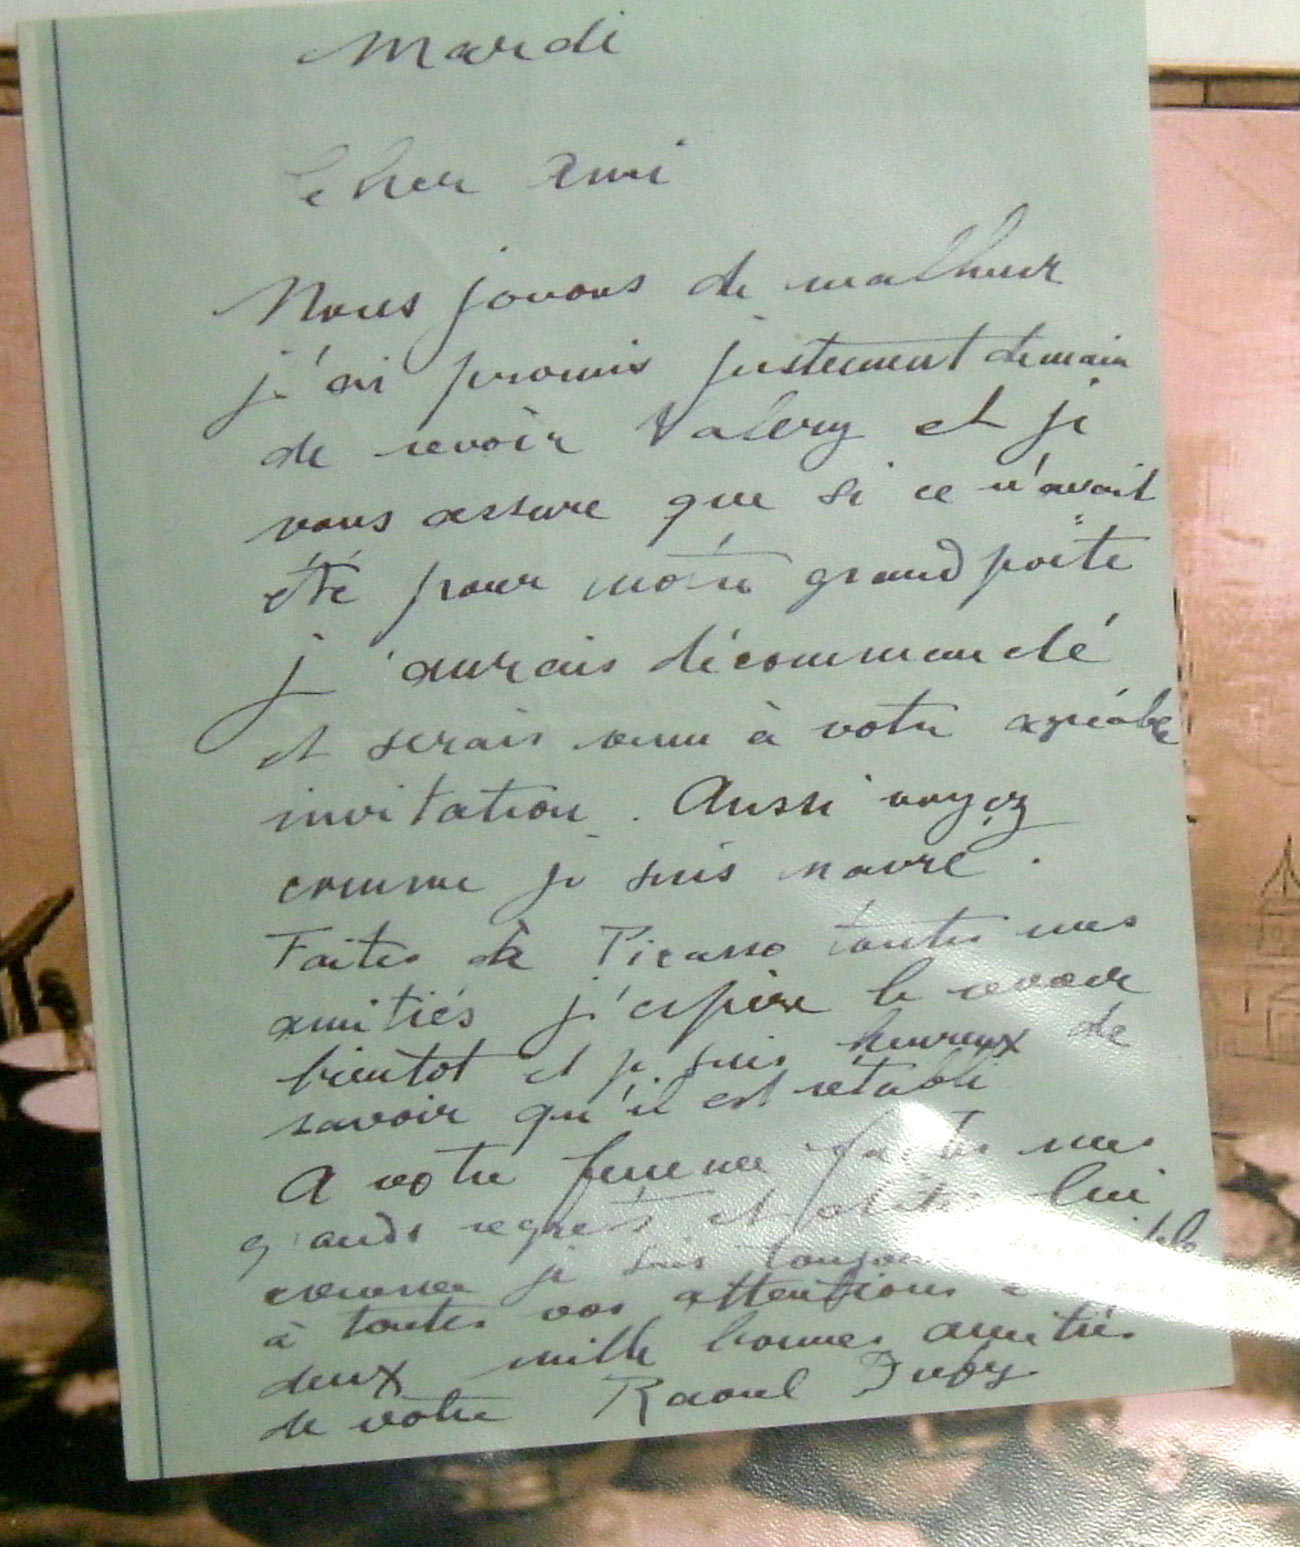 Mardi
Cher Ami
Nous jouons de malheur
j'ai promis justement demain
de revoir Valery et je
vous assure que si ce n'avait
été pour notre grand poëte
j'aurais décommandé
et serais venu à votre agréable
invitation. Aussi voyez
comme je suis navré.
Faites à Picasso toutes mes
amitiés j'espère le revoir
bientot et je suis heureux de
savoir qu'il est rétabli
A votre femme faites mes
grands regrets et dites lui
comme je suis toujours sensible
à toutes vos attentions à
deux mille bonnes amitiés
de votre Raoul Dufy